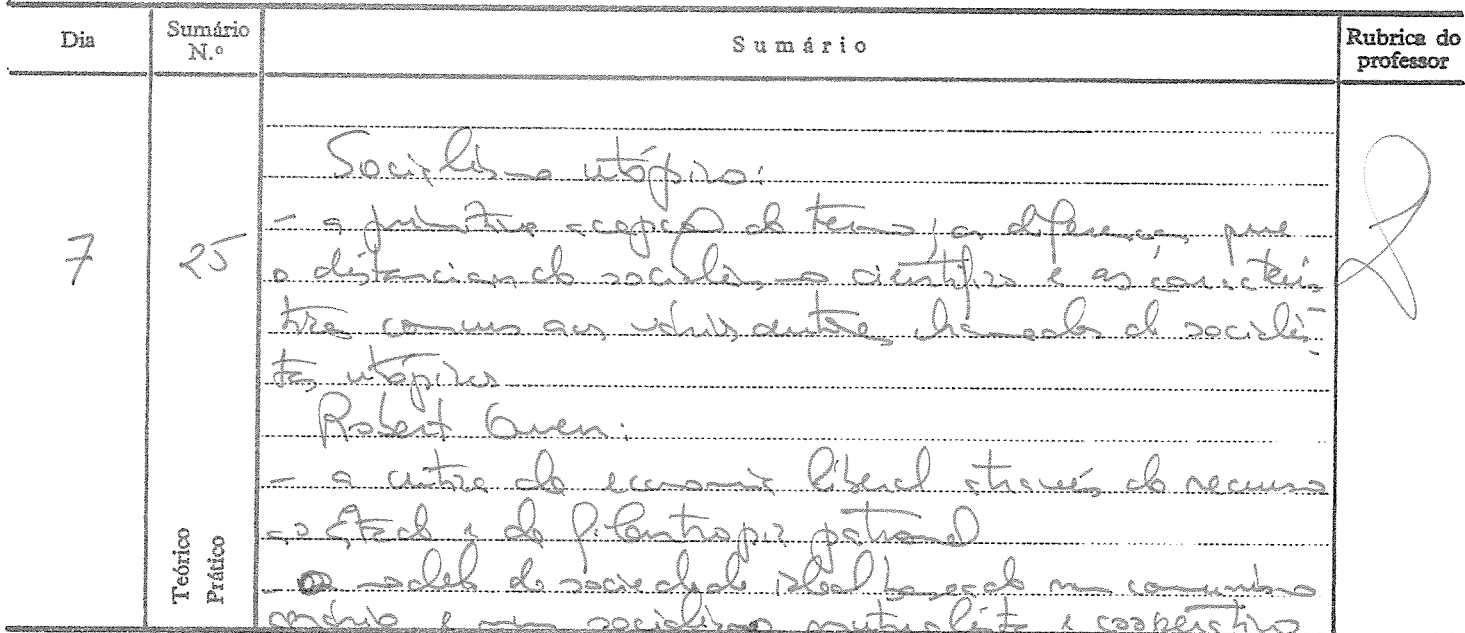 Dia
Sumário N.º
Sumário
Rubrica do professor
7
25
Teórico
Prático
Socialismo utópico:
- a primitiva acepção do termo, as diferenças que
o distanciam do socialismo científico e as caracterís-
ticas comuns aos vários autores chamados de socialis-
tas utópicos
Robert Owen:
- a crítica da economia liberal através do recurso
ao Estado e da filantropia patronal
- o modelo de sociedade ideal baseado num comunismo
agrário e num socialismo mutualista e cooperativo